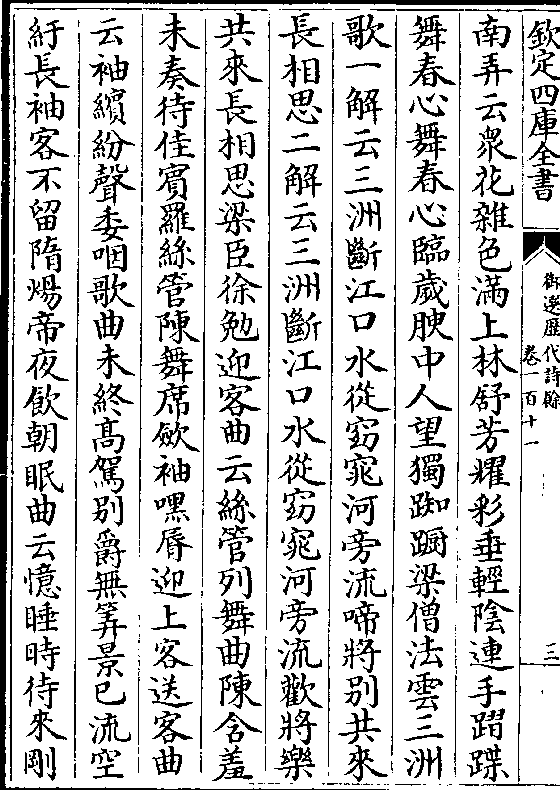 欽定四庫全書
御選歷代詩餘
卷一百十一
三
南弄云衆花雜色滿上林舒芳耀彩垂輕陰連手躧蹀
舞春心舞春心臨歲腴中人望獨踟蹰梁僧法雲三洲
歌一解云三洲斷江口水從窈窕河旁流啼將别共來
長相思二解云三洲斷江口水從窈窕河旁流歡將樂
共來長相思梁臣徐勉迎客曲云絲管列舞曲陳含羞
未奏待佳賓羅絲管陳舞席斂袖嘿脣迎上客送客曲
云袖繽紛聲委咽歌曲未終髙駕别爵無筭景已流空
紆長袖客不留隋煬帝夜飲朝眠曲云憶睡時待來剛